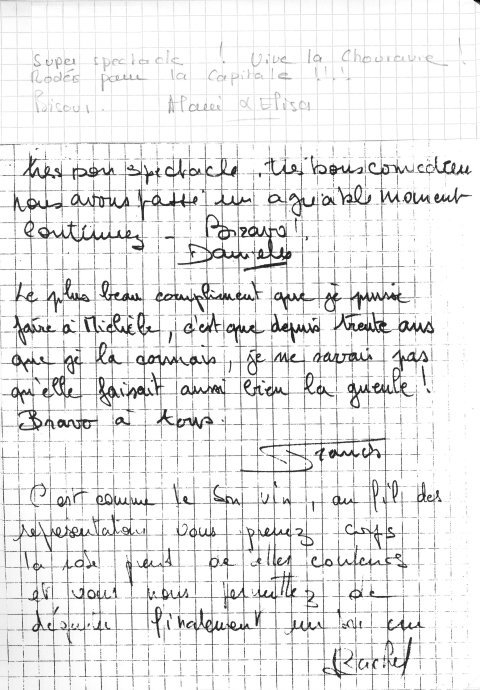 Super spectacle ! Vive la Chouraure !
Rodés pour la Capitale !!!!
Bisous. Alani & Elisa
très bon spectacle, très bons comédiens
nous avons passé un agréable moment
Continuez - Bravo !
Danielle
Le plus beau compliment que je puisse
faire à Michèle, c'est que depuis trente ans
que je la connais, je ne savais pas
qu'elle faisait aussi bien la gueule !
Bravo à tous.
Francis
C'est comme le bon vin, au fil des
représentations vous prenez corps
la rose prend de belles couleurs
et vous nous permettez de
déguster finalement un
Rachel